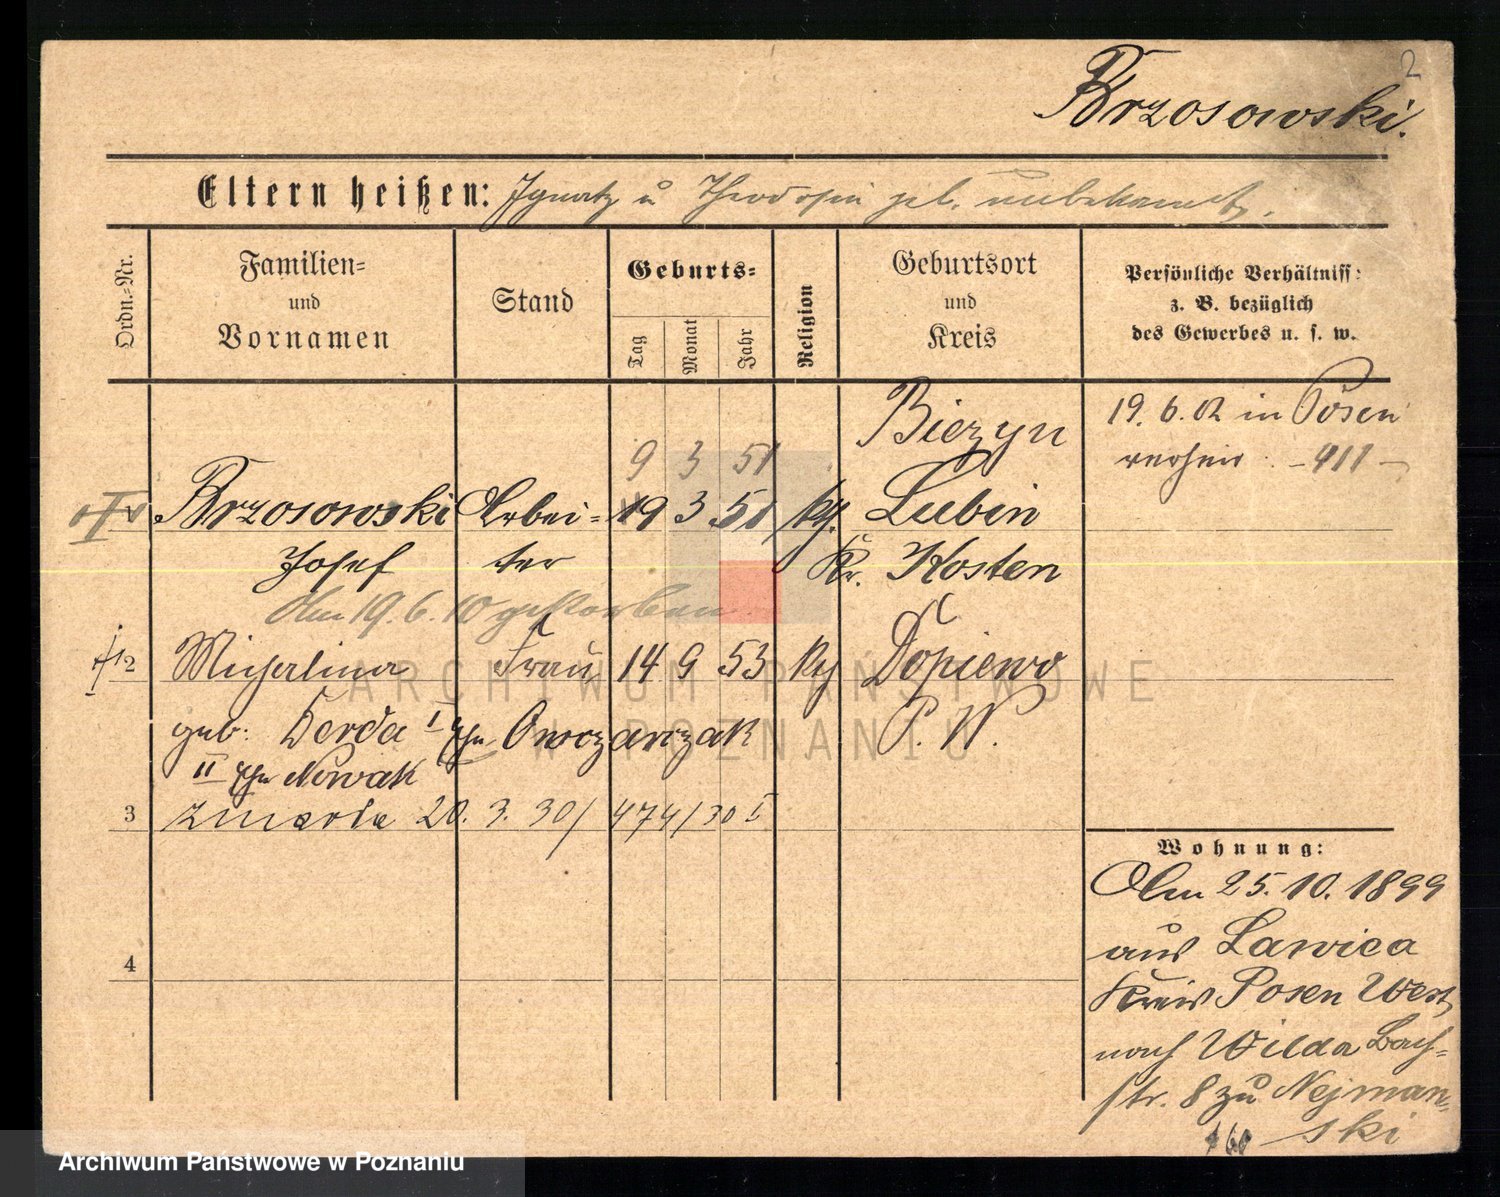 2
Brzosowski.
Eltern heißen: Ignatz u Theodosia geb. unbekannt.
Ordn.-Nr.
Familien- und Vornamen
Stand
Geburts-
Tag
Monat
Jahr
Religion
Geburtsort und Kreis
Persönliche Verhältniss:
z. B. bezüglich
des Gewerbes u. s. w.
Biezyn
19. 6. 02 in Posen
9 3 51
verheir. - 411 -
Brzosowski Arbei- 19 3 51 kj. Lubin
Josef ter Kr. Kosten
Am 19. 6. 10 gestorben
2 Michalina Frau 14 9 53 kj Dopiewo
geb. Derda I Ehe Owczarczak P. W.
II Ehe Nowak
3 zmarła 20. 3. 30/ 474/30 I
Wohnung:
Am 25. 10. 1899
aus Lawica
4
Kreis Posen West
nach Wilda Bach-
str. 8 zu Nejman-
ski
160
ARCHIWUM PAŃSTWOWE
W POZNANIU
Archiwum Państwowe w Poznaniu